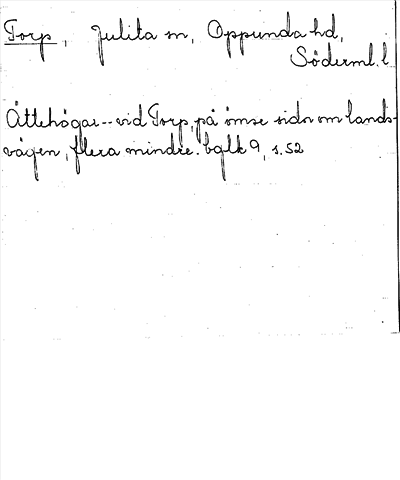 Torp, Julita sn, Oppunda hd,
Söderml. l.
Ättehögar -- vid Torp, på ömse sidor om lands-
vägen, flera mindre. bglk 9, s. 52